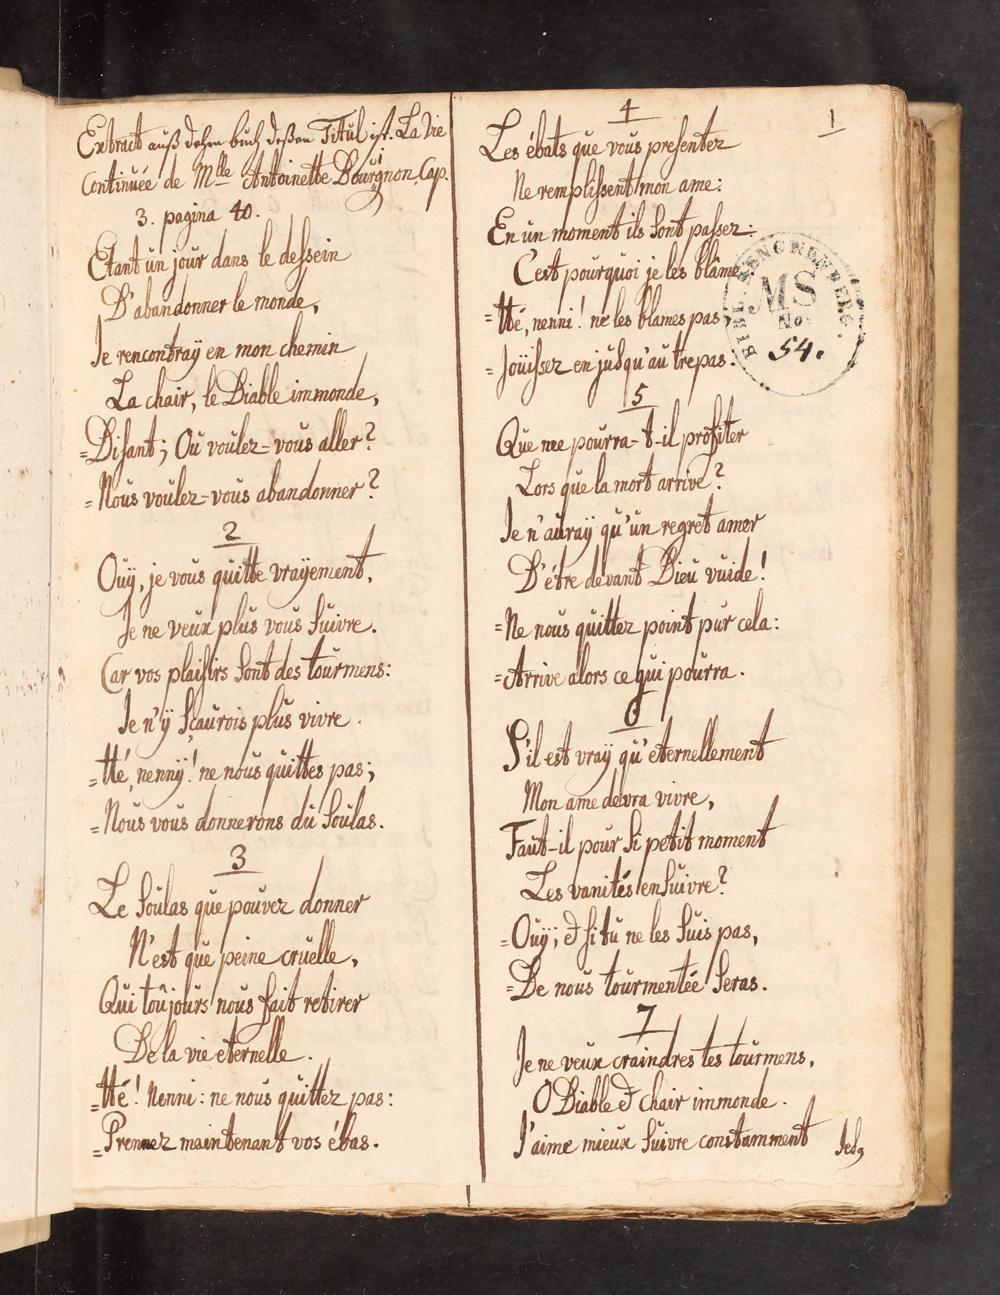 Extract auß dehm buch deßen Titul ist. La Vie
Continuée de Mlle Antoinette Bourignon. Cap.
3. pagina 40.
Etant un jour dans le dessein
D'abandonner le monde,
Je rencontraÿ en mon chemin
La chair, le Diable immonde,
=Disant; Ou voulez-vous aller?
=Nous voulez-vous abandonner?
2
Ouÿ, je vous quitte vrayement,
Je ne veux plus vous suivre.
Car vos plaisirs sont des tourmens:
Je n'ÿ scaurois plus vivre.
=Hé, nennÿ! ne nous quittes pas;
=Nous vous donnerons du soulas.
3
Le soulas que pouvez donner
N'est que peine cruelle,
Qui toûjours nous fait retirer
De la vie eternelle.
=Hé! Nenni: ne nous quittez pas:
=Prennez maintenant vos ébas.
1
4
Les ébats que vous presentez
Ne remplissent mon ame:
En un moment ils sont passez:
C'est pourquoi je les blâme
=Hé, nenni! ne les blames pas
=Joüissez en jusqu'au trepas.
BIBL. SENCKENBERG.
MS
No.
54.
5
Que me pourra-t-il profiter
Lors que la mort arrive?
Je n'auraÿ qu'un regret amer
D'étre devant Dieu vuide!
=Ne nous quittez point pur cela:
=Arrive alors ce qui pourra.
6
S'il est vraÿ qu'eternellement
Mon ame devra vivre,
Faut-il pour si petit moment
Les vanités ensuivre?
=Ouÿ; & si tu ne les suis pas,
=De nous tourmentée seras.
7
Je ne veux craindres tes tourmens,
O Diable & chair immonde.
J'aime mieux suivre constamment